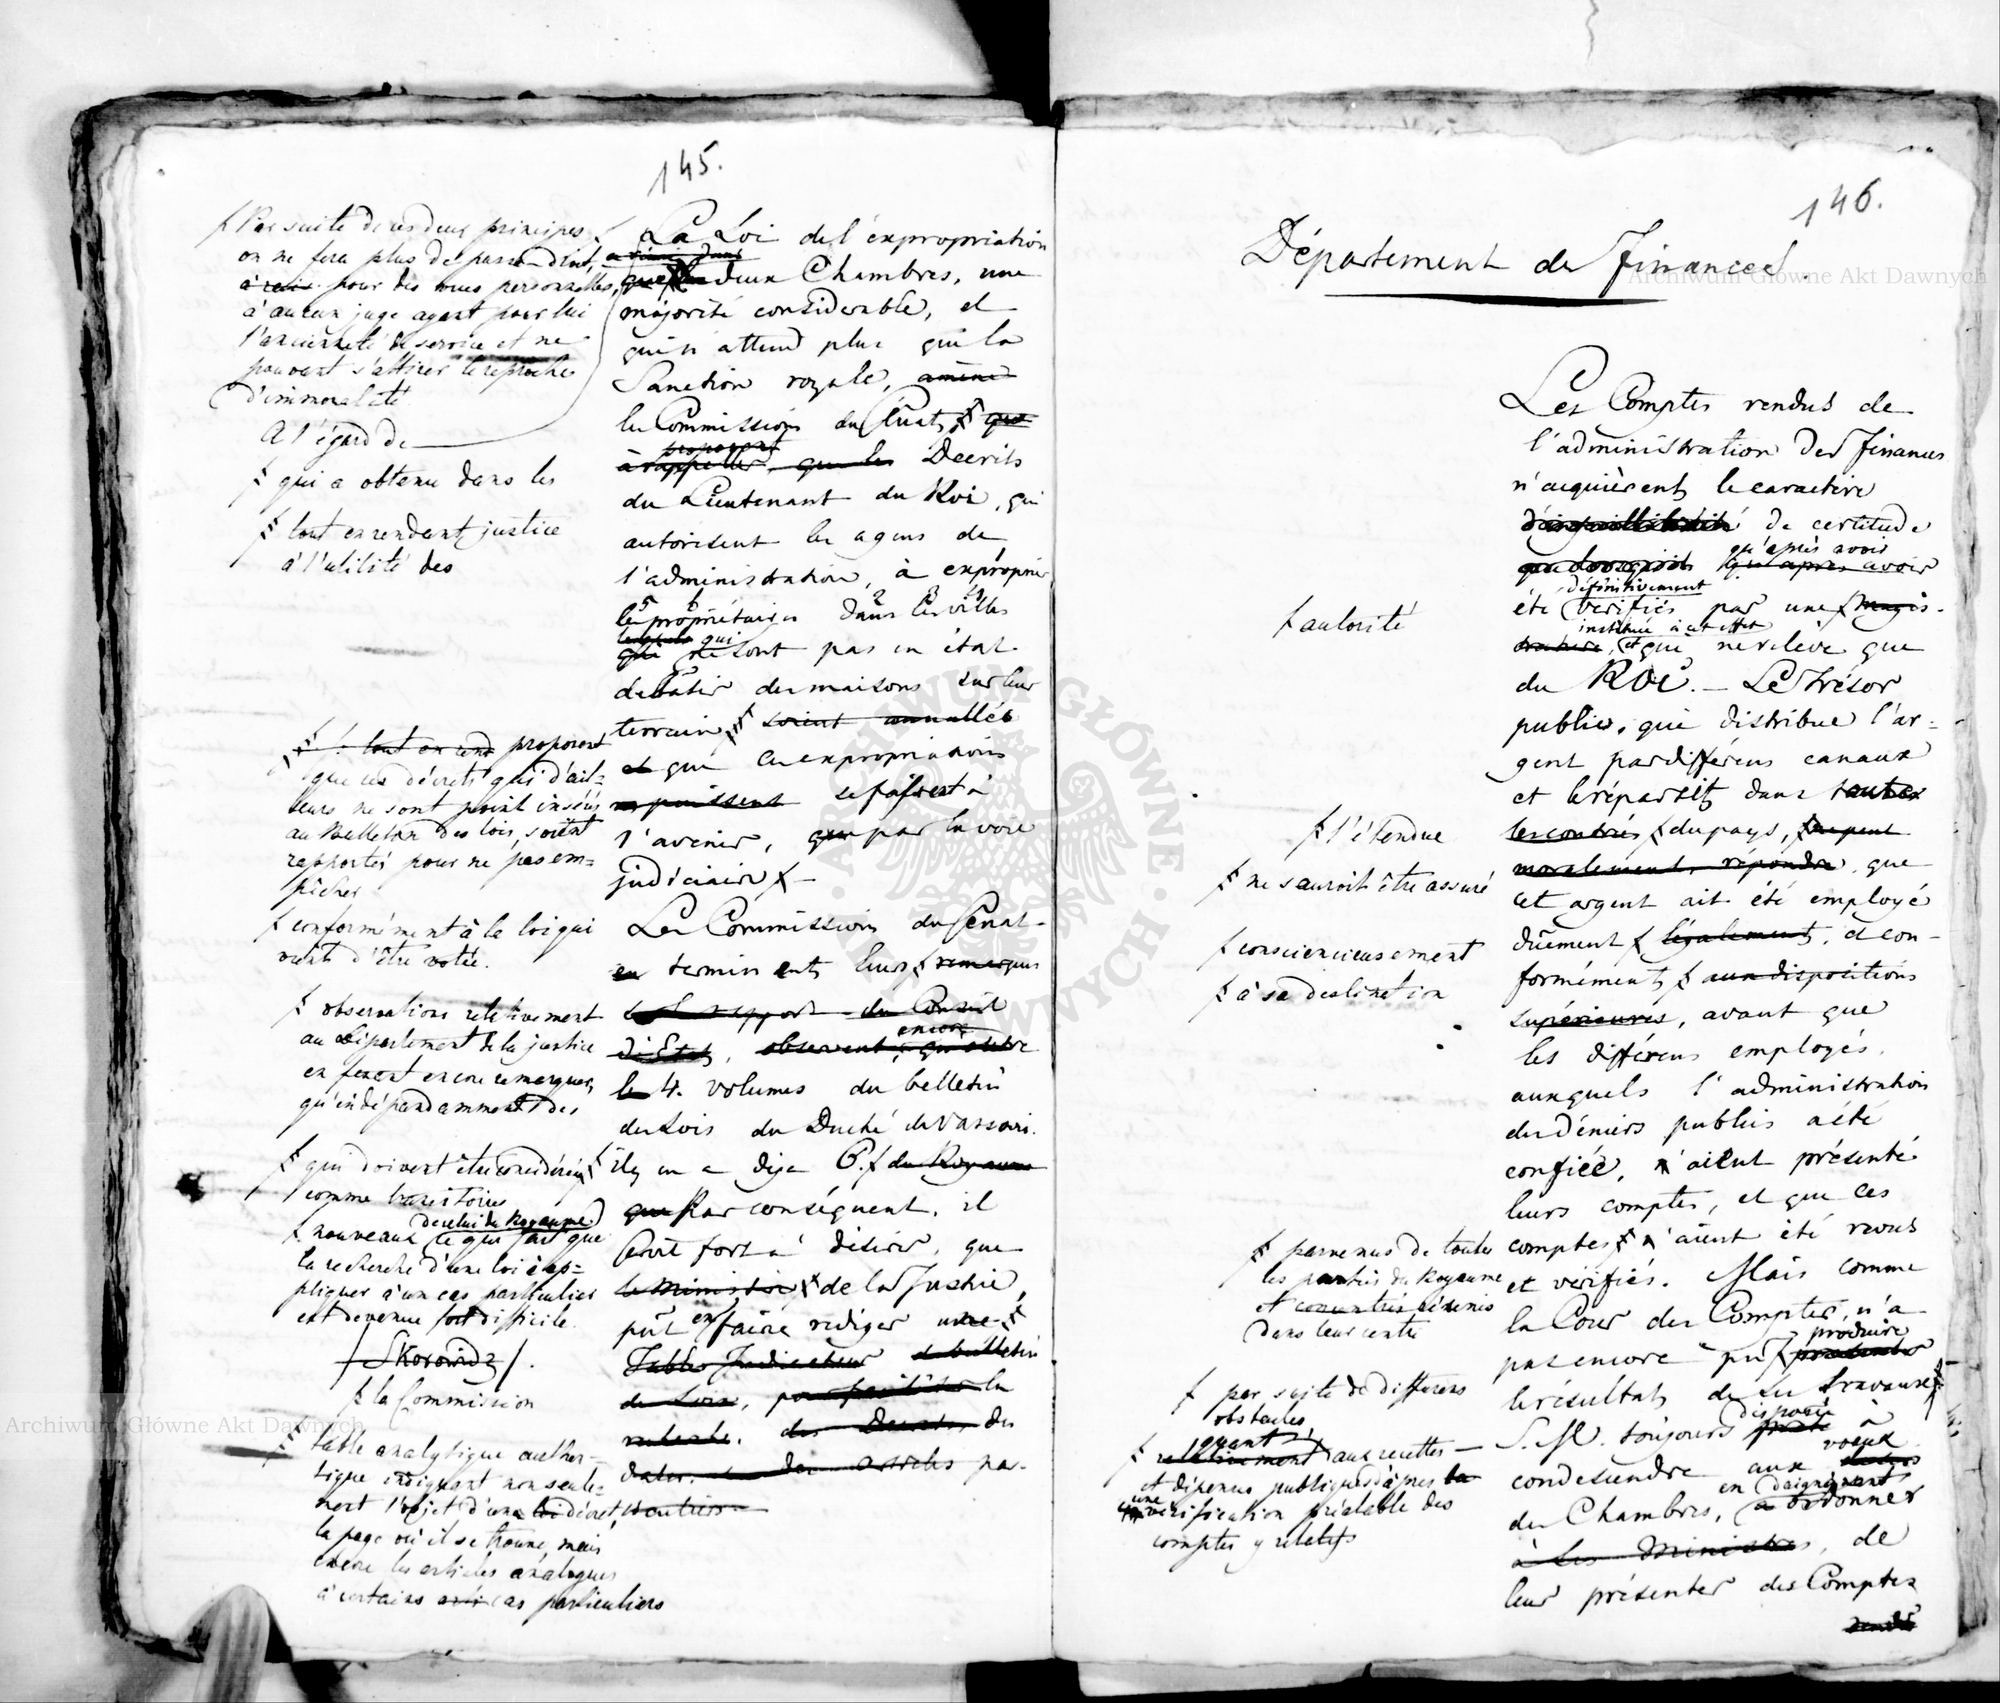 145.
ƒ Par suite de ces deux principes
on ne fera plus de passe-droit,
à rais pour des vues personnelles,
à aucun juge ayant pour lui
l'ancienneté de service et ne
pouvant s'attirer le reproche
d'immoralité
A l'égard de
ƒ qui a obtenu dans les
ƒ tout en rendant justice
à l'utilité des
ƒ tout en rend proposent
que ces décrets qui d'ail=
leurs ne sont point insérés
au Bulletin des lois, soient
rapportés pour ne pas em=
pêcher
ƒ conformément à la loi qui
vient d'être votée.
ƒ observations relativement
au Département de la justice
en feront encore remarquer,
qu'indépendamment des
ƒ qui doivent être considérés
comme transitoires
de celui du Royaume
ƒ nouveaux ce qui fait que
la recherche d'une loi à ap=
pliquer à un cas particulier
est devenue fort difficile.
/Skorowidz/.
ƒ la Commission
ƒ table analytique authen-
tique indiquant non seule-
ment l'objet d'une loi décret,
la page où il se trouve, mais
encore les articles analogues
à certains cas particuliers
La Loi de l'expropriation
a réuni dans
que les deux Chambres, une
majorité considerable, et
qui n'attend plus que la
Sanction royale, amène
les Commissions du Sénat ƒ que
proposent
à rappeller, que les Decrets
du Lieutenant du Roi, qui
autorisent les agens de
l'administration, à exproprier
les propriétaires dans les villes
lesquels qui
qui ne sont pas en état
de batir des maisons sur leur
terrain ƒ soient annullés
et que ces expropriations
ne puissent se fassent à
l'avenir, que par la voie
judiciaire ƒ —
Les Commissions du Sénat
en terminant leurs ƒ remarques
sur le rapport du Conseil
encore
d'Etat, observent, qu'outre
les 4. volumes du bulletin
des Lois du Duché de Varsovie.
il y en a deja 6. ƒ du Royaume
que Par conséquent, il
seroit fort à désirer, que
le Ministre ƒ de la Justice,
pût en faire rediger une ƒ
Table Indicateur du bulletin
de Loix, pour faciliter la
recherche, des Decrets, des
dates, et des articles pa-
rticuliers
146.
Département des Finances
Les Comptes rendus de
l'administration des Finances
n'acquièrent le caractère
de certitude
qu'après avoir
qu'après avoir
définitivement
été vérifiés par une ƒ magis-
instituée à cet effet
trature, et qui ne relève que
du ROI. — Le Trésor
public, qui distribue l'ar=
gent par différens canaux
et le répartit dans toutes
les contrées ƒ du pays, ne peut
moralement répondre, que
cet argent ait été employé
dûement ƒ légalement, et con-
formément ƒ aux dispositions
supérieures, avant que
les différens employés,
auxquels l'administration
des déniers publics a été
confiée, n'aient présenté
leurs comptes, et que ces
comptes ƒ n'aient été revus
et vérifiés. Mais comme
la Cour des Comptes, n'a
produire
pas encore pu ƒ présenter
le résultat de ses travaux ƒ
disposée
S. M. toujours prete à
voeux
condescendre aux desirs
en daignant
des Chambres, a ordonner
à ses Ministres, de
leur présenter des Comptes
rendus
ƒ autorité
ƒ l'étendue
ƒ ne sauroit être assuré
ƒ consciencieusement
ƒ à sa destination
ƒ parvenus de toutes
les parties du Royaume
et concentrés réunis
dans leur centre
ƒ par suite de differens
obstacles
quant
ƒ relativement aux recettes —
et dépenses publiques d'après la
une
vérification préalable des
comptes y relatifs
Archiwum Główne Akt Dawnych
Archiwum Główne Akt Dawnych
ARCHIWUM GŁÓWNE AKT DAWNYCH